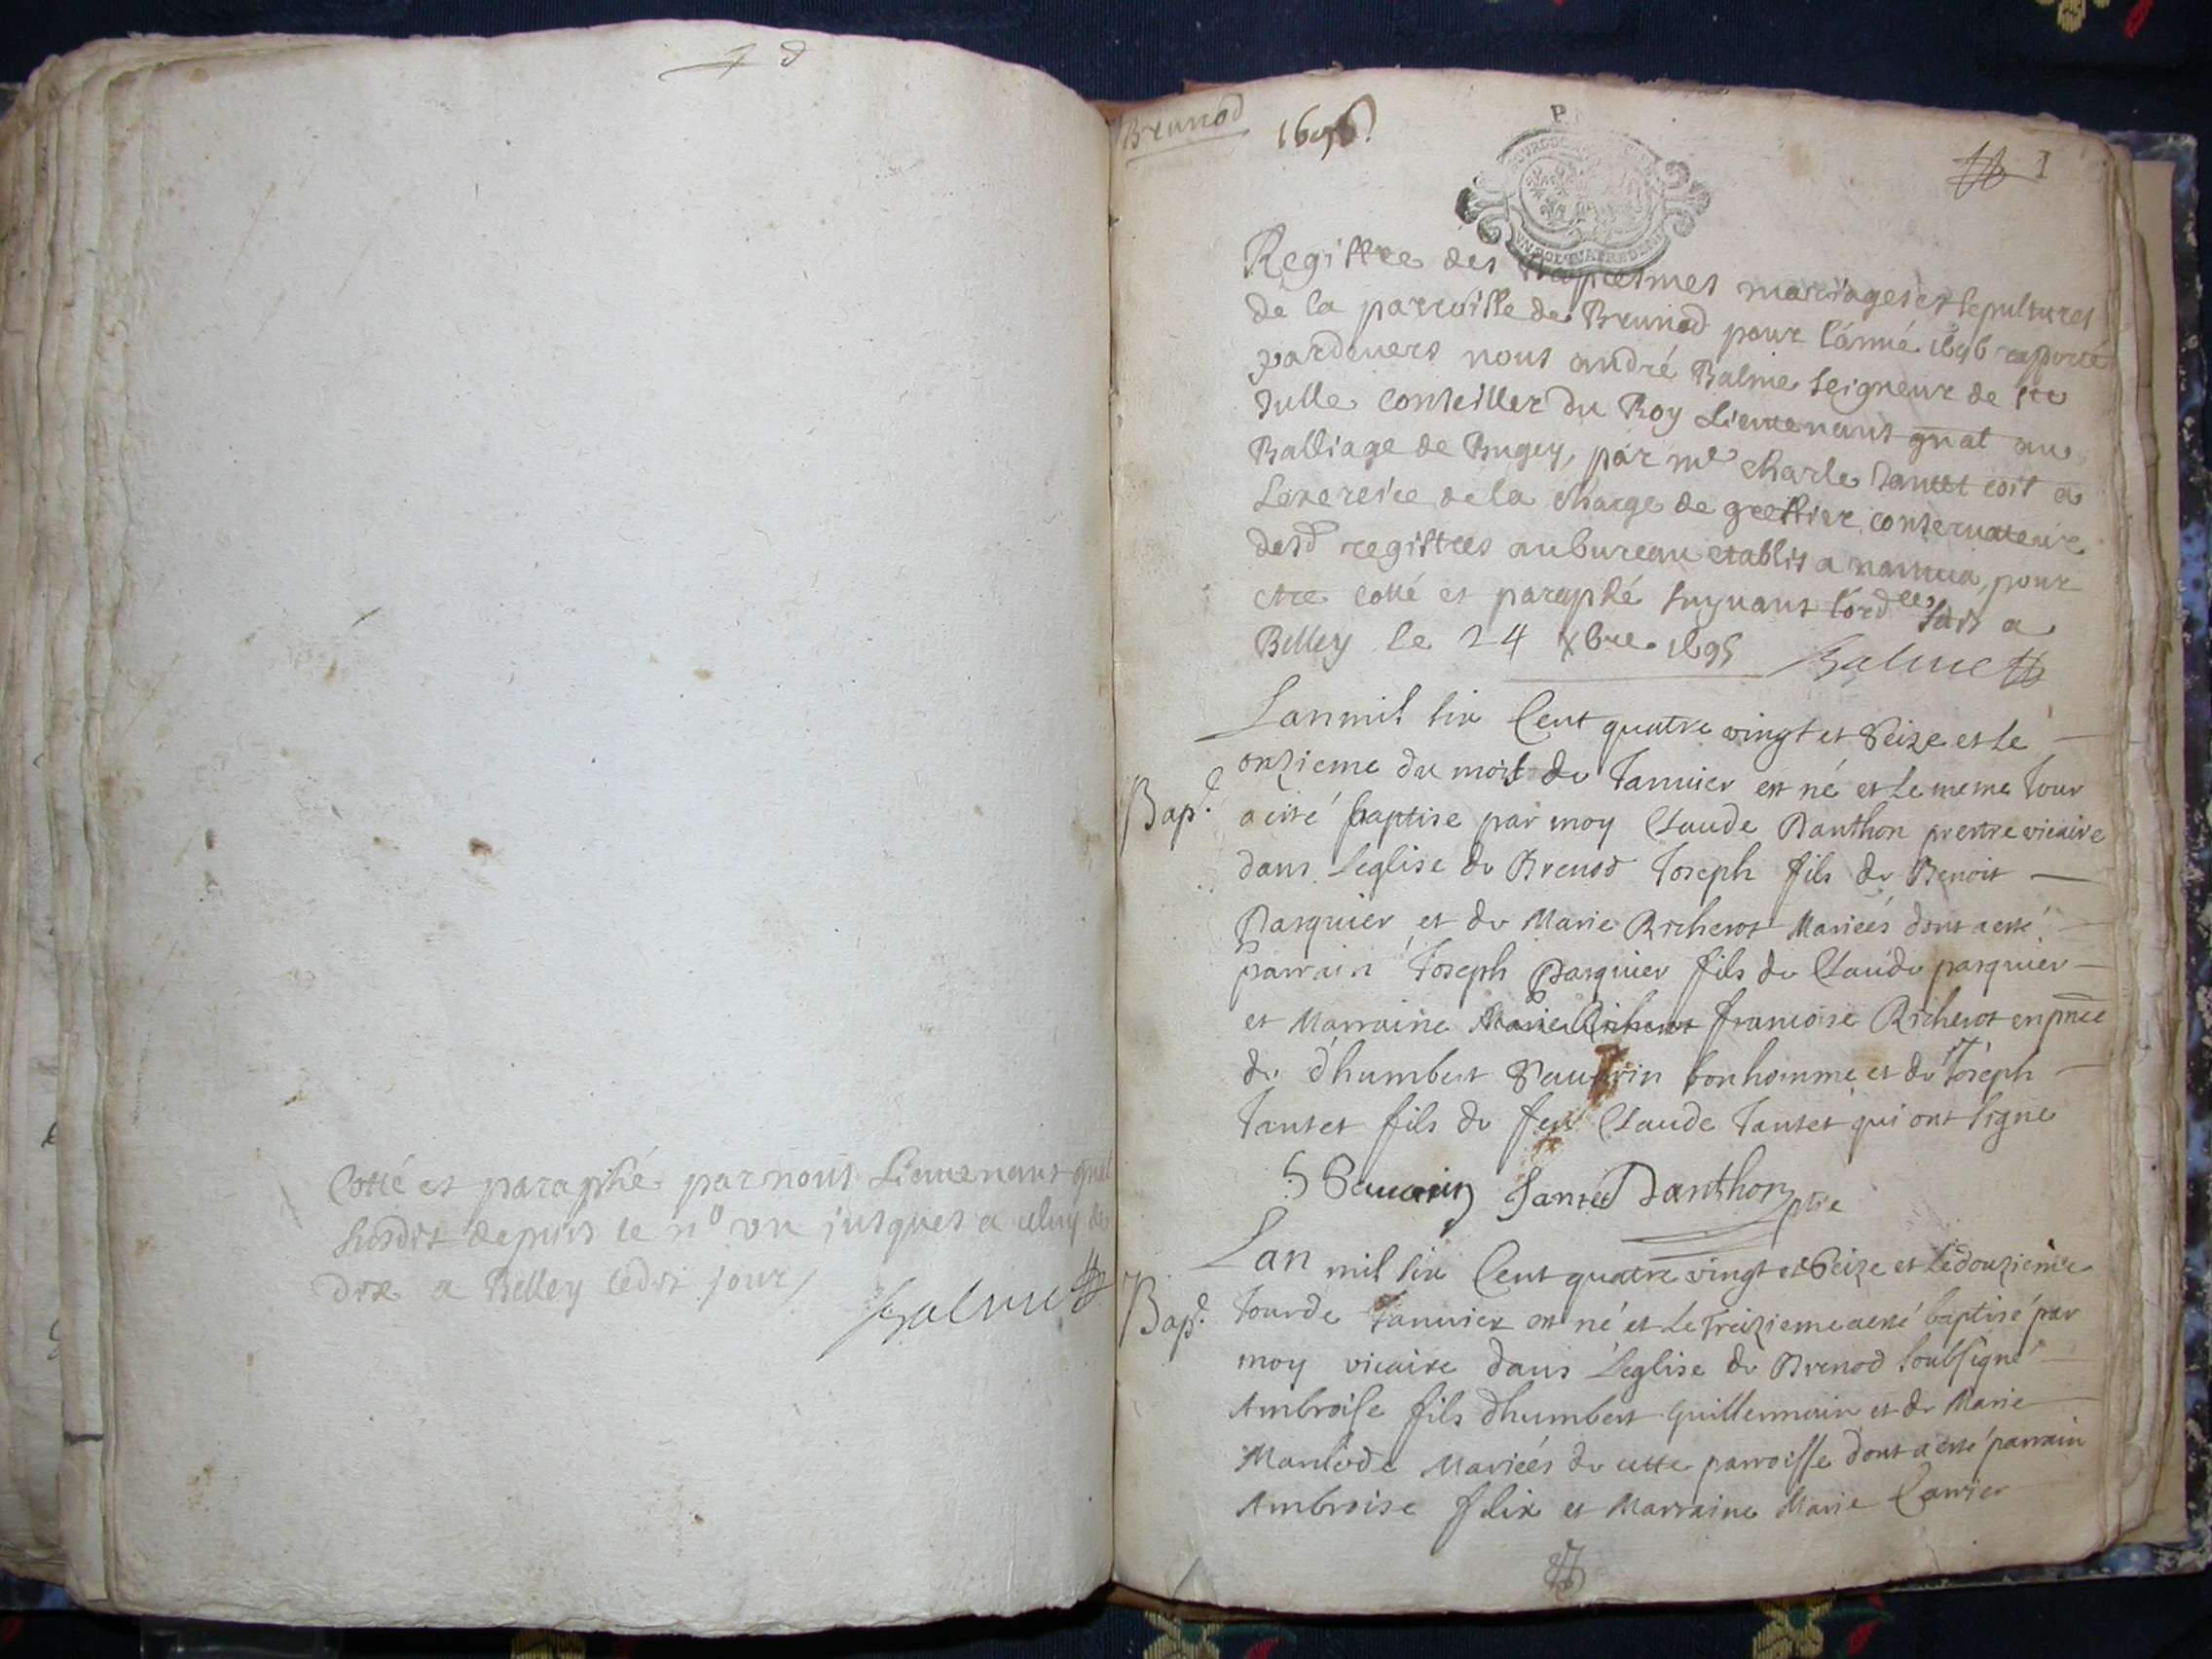 Cotté et paraphé par nous Lieutenant gnal
susdit depuis le n° un jusques a celuy de
dix a Belley ledit jour
Balme
Brunod 1696
1
Registre des Baptesmes mariages et sepultures
de la parroisse de Brunod pour l'année 1696 apporté
pardevers nous andré Balme seigneur de ste
Julle conseiller du Roy Lieutenant gnal au
Balliage de Bugey, par me Charle Jantet coit a
Lexercice de la charge de greffier conservateur
desd registres au bureau establit a nantua, pour
etre cotté et paraphé suyvant l'ordce fait a
Belley le 24 xbre 1695 Balme
Lanmil six Cent quatre vingt et Seize et Le
onzieme du mois de Januier est né et Le meme Jour
Bap.e a esté baptise par moy Claude Danthon prestre vicaire
dans Leglise de Brenod Joseph fils de Benoit
Pasquier et de Marie Richerot Mariés dont a esté
parrain Joseph Pasquier fils de Claude pasquier
et Marraine francoise Richerot en pnce
de dhumbert Sauarin bonhomme et de Joseph
Jantet fils de feu Claude Jantet qui ont signe
Sauarin Jantet Danthon ptre
Lan mil six Cent quatre vingt et Seize et Le douzieme
Bap.e Jour de Januier est né et Le Treizieme a esté baptisé par
moy vicaire dans Leglise de Brenod soubsigné
Ambroise fils dhumbert Guillermain et de Marie
Mariés de cette parroisse dont a esté parrain
Ambroise felix et Marraine Marie Carrier